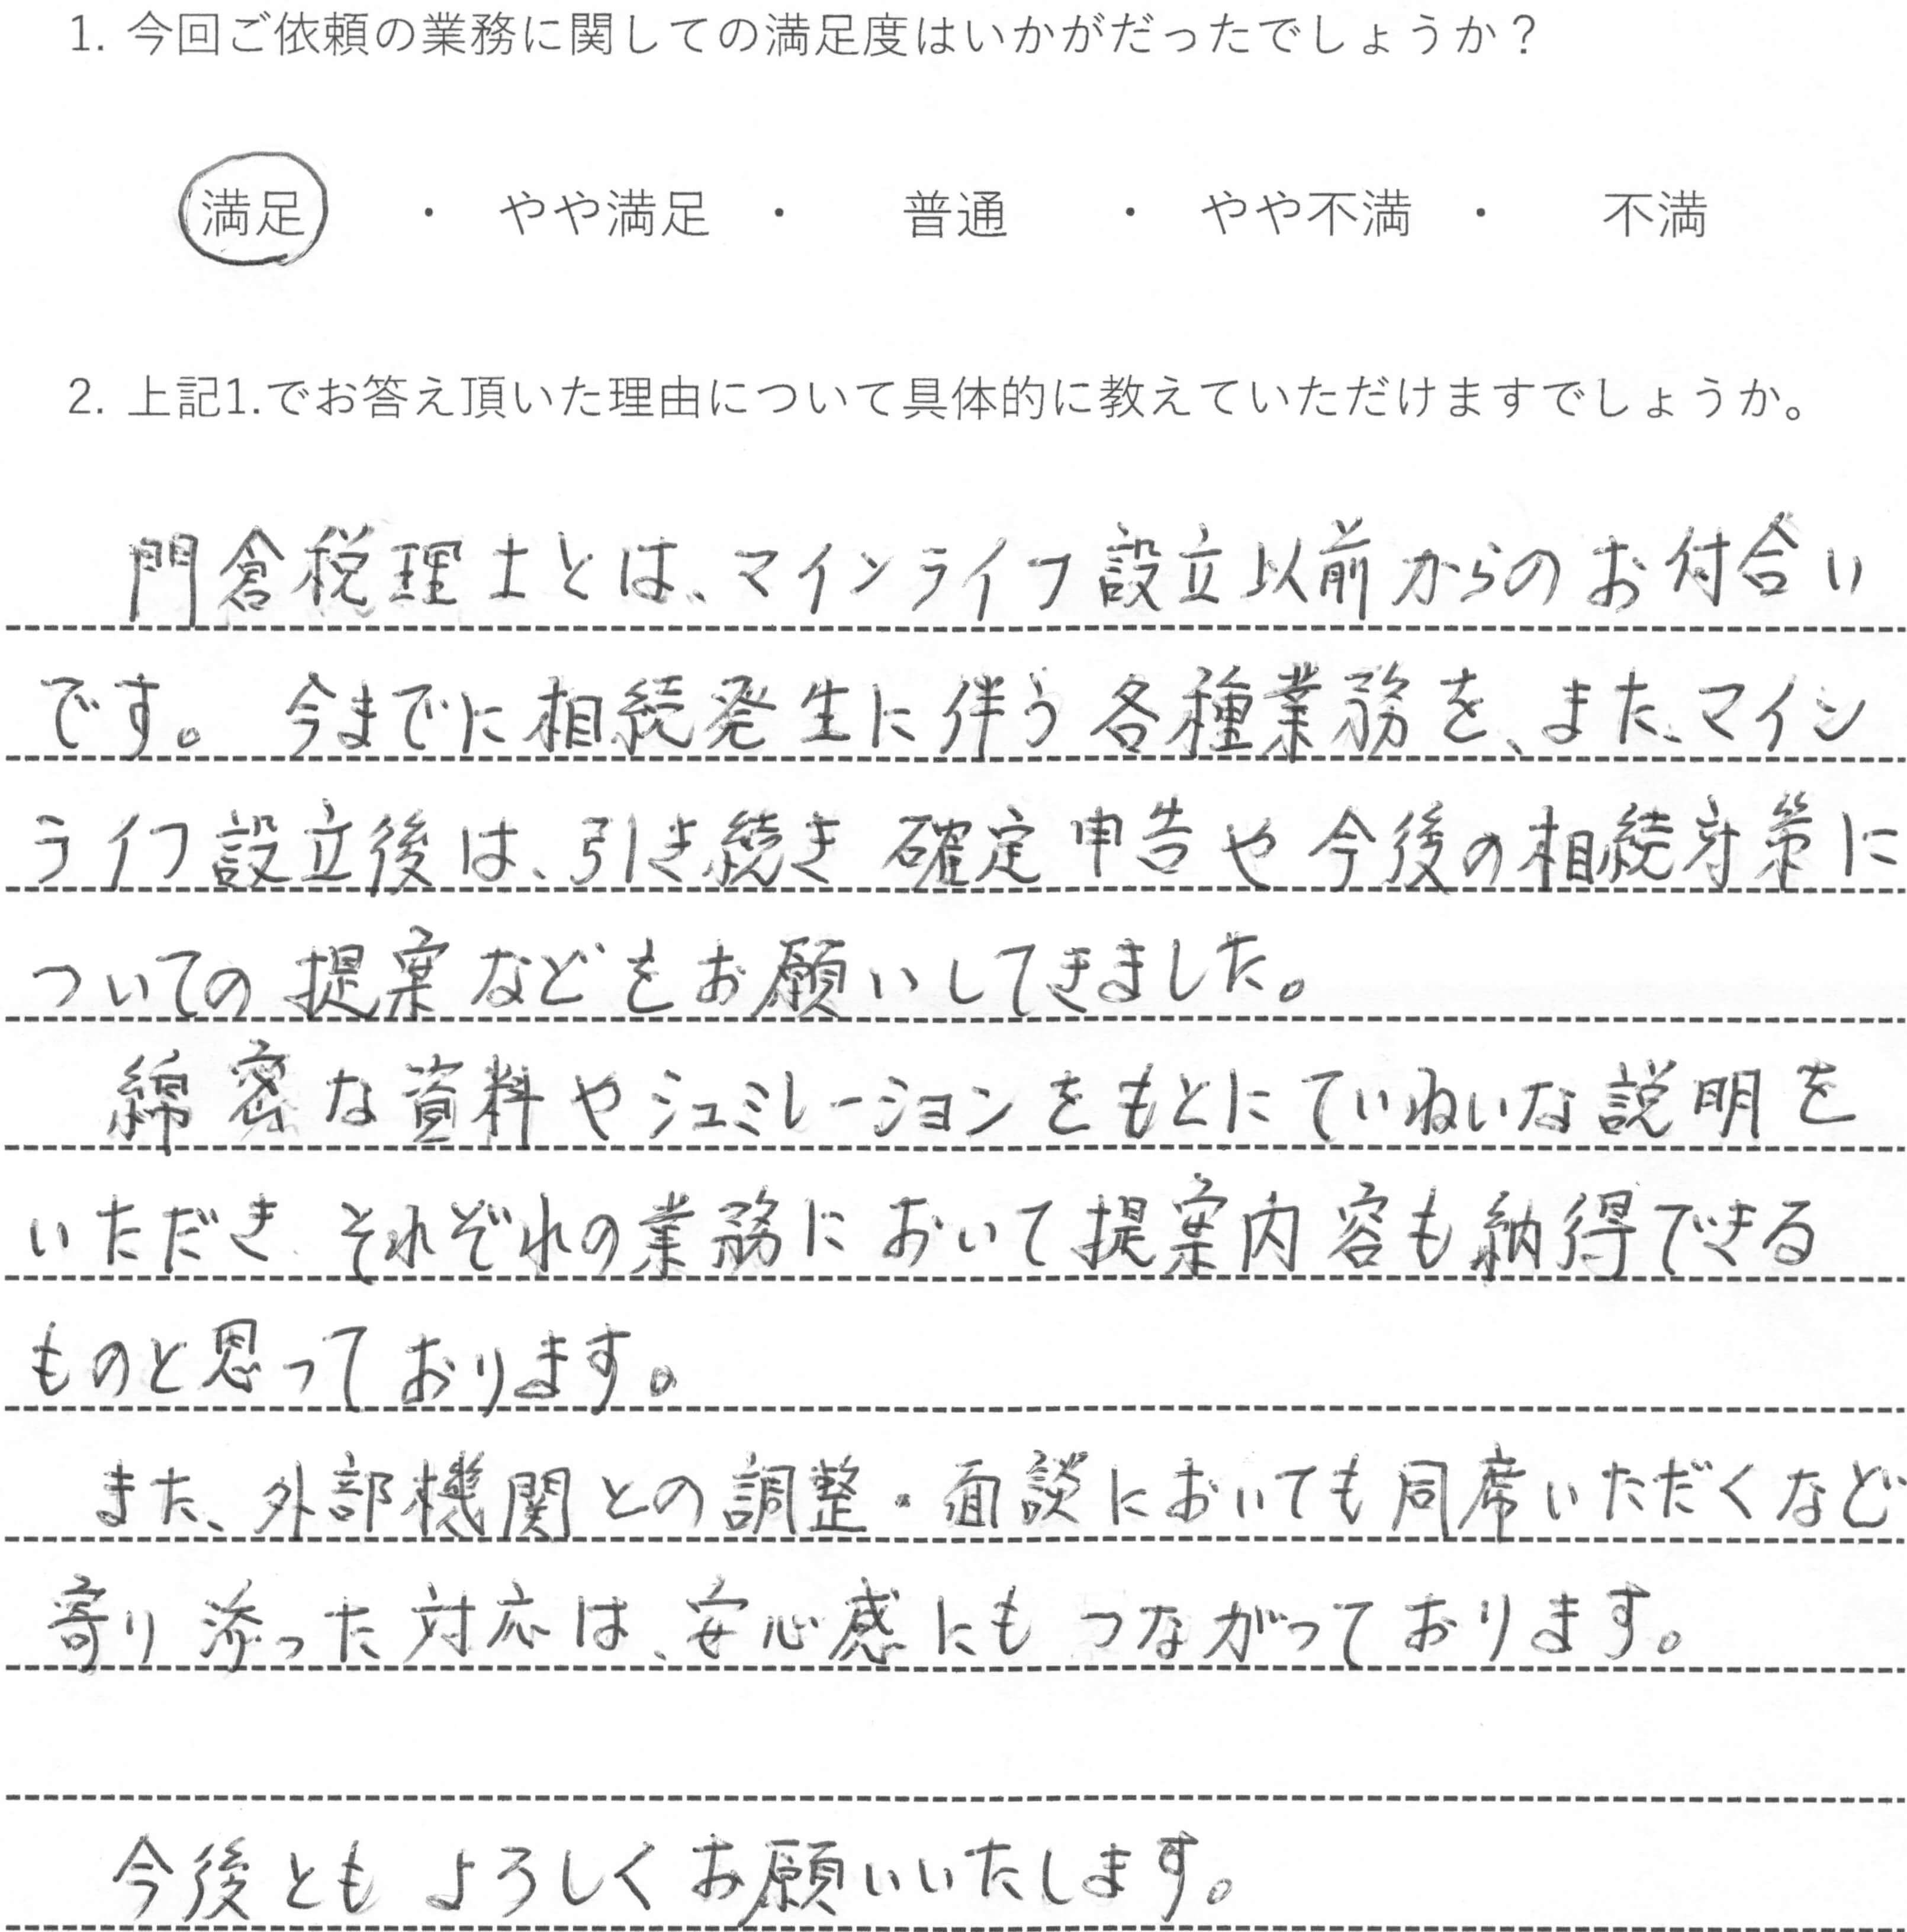 1. 今回ご依頼の業務に関しての満足度はいかがだったでしょうか？
満足 ・ やや満足 ・ 普通 ・ やや不満 ・ 不満
2. 上記1.でお答え頂いた理由について具体的に教えていただけますでしょうか。
門倉税理士とは、マインライフ設立以前からのお付合い
です。今までに相続発生に伴う各種業務を、また、マイン
ライフ設立後は、引き続き確定申告や今後の相続対策に
ついての提案などをお願いしてきました。
綿密な資料やシュミレーションをもとにていねいな説明を
いただき、それぞれの業務において提案内容も納得できる
ものと思っております。
また、外部機関との調整・面談においても同席いただくなど
寄り添った対応は、安心感にもつながっております。
今後ともよろしくお願いいたします。